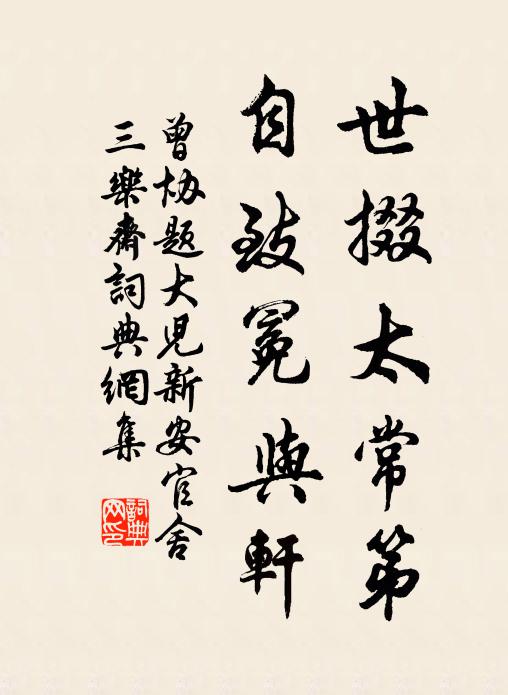 世掇太常第
自致冕與軒
曾協題大児新安官舍
三樂齋詞典網集
詞典網印